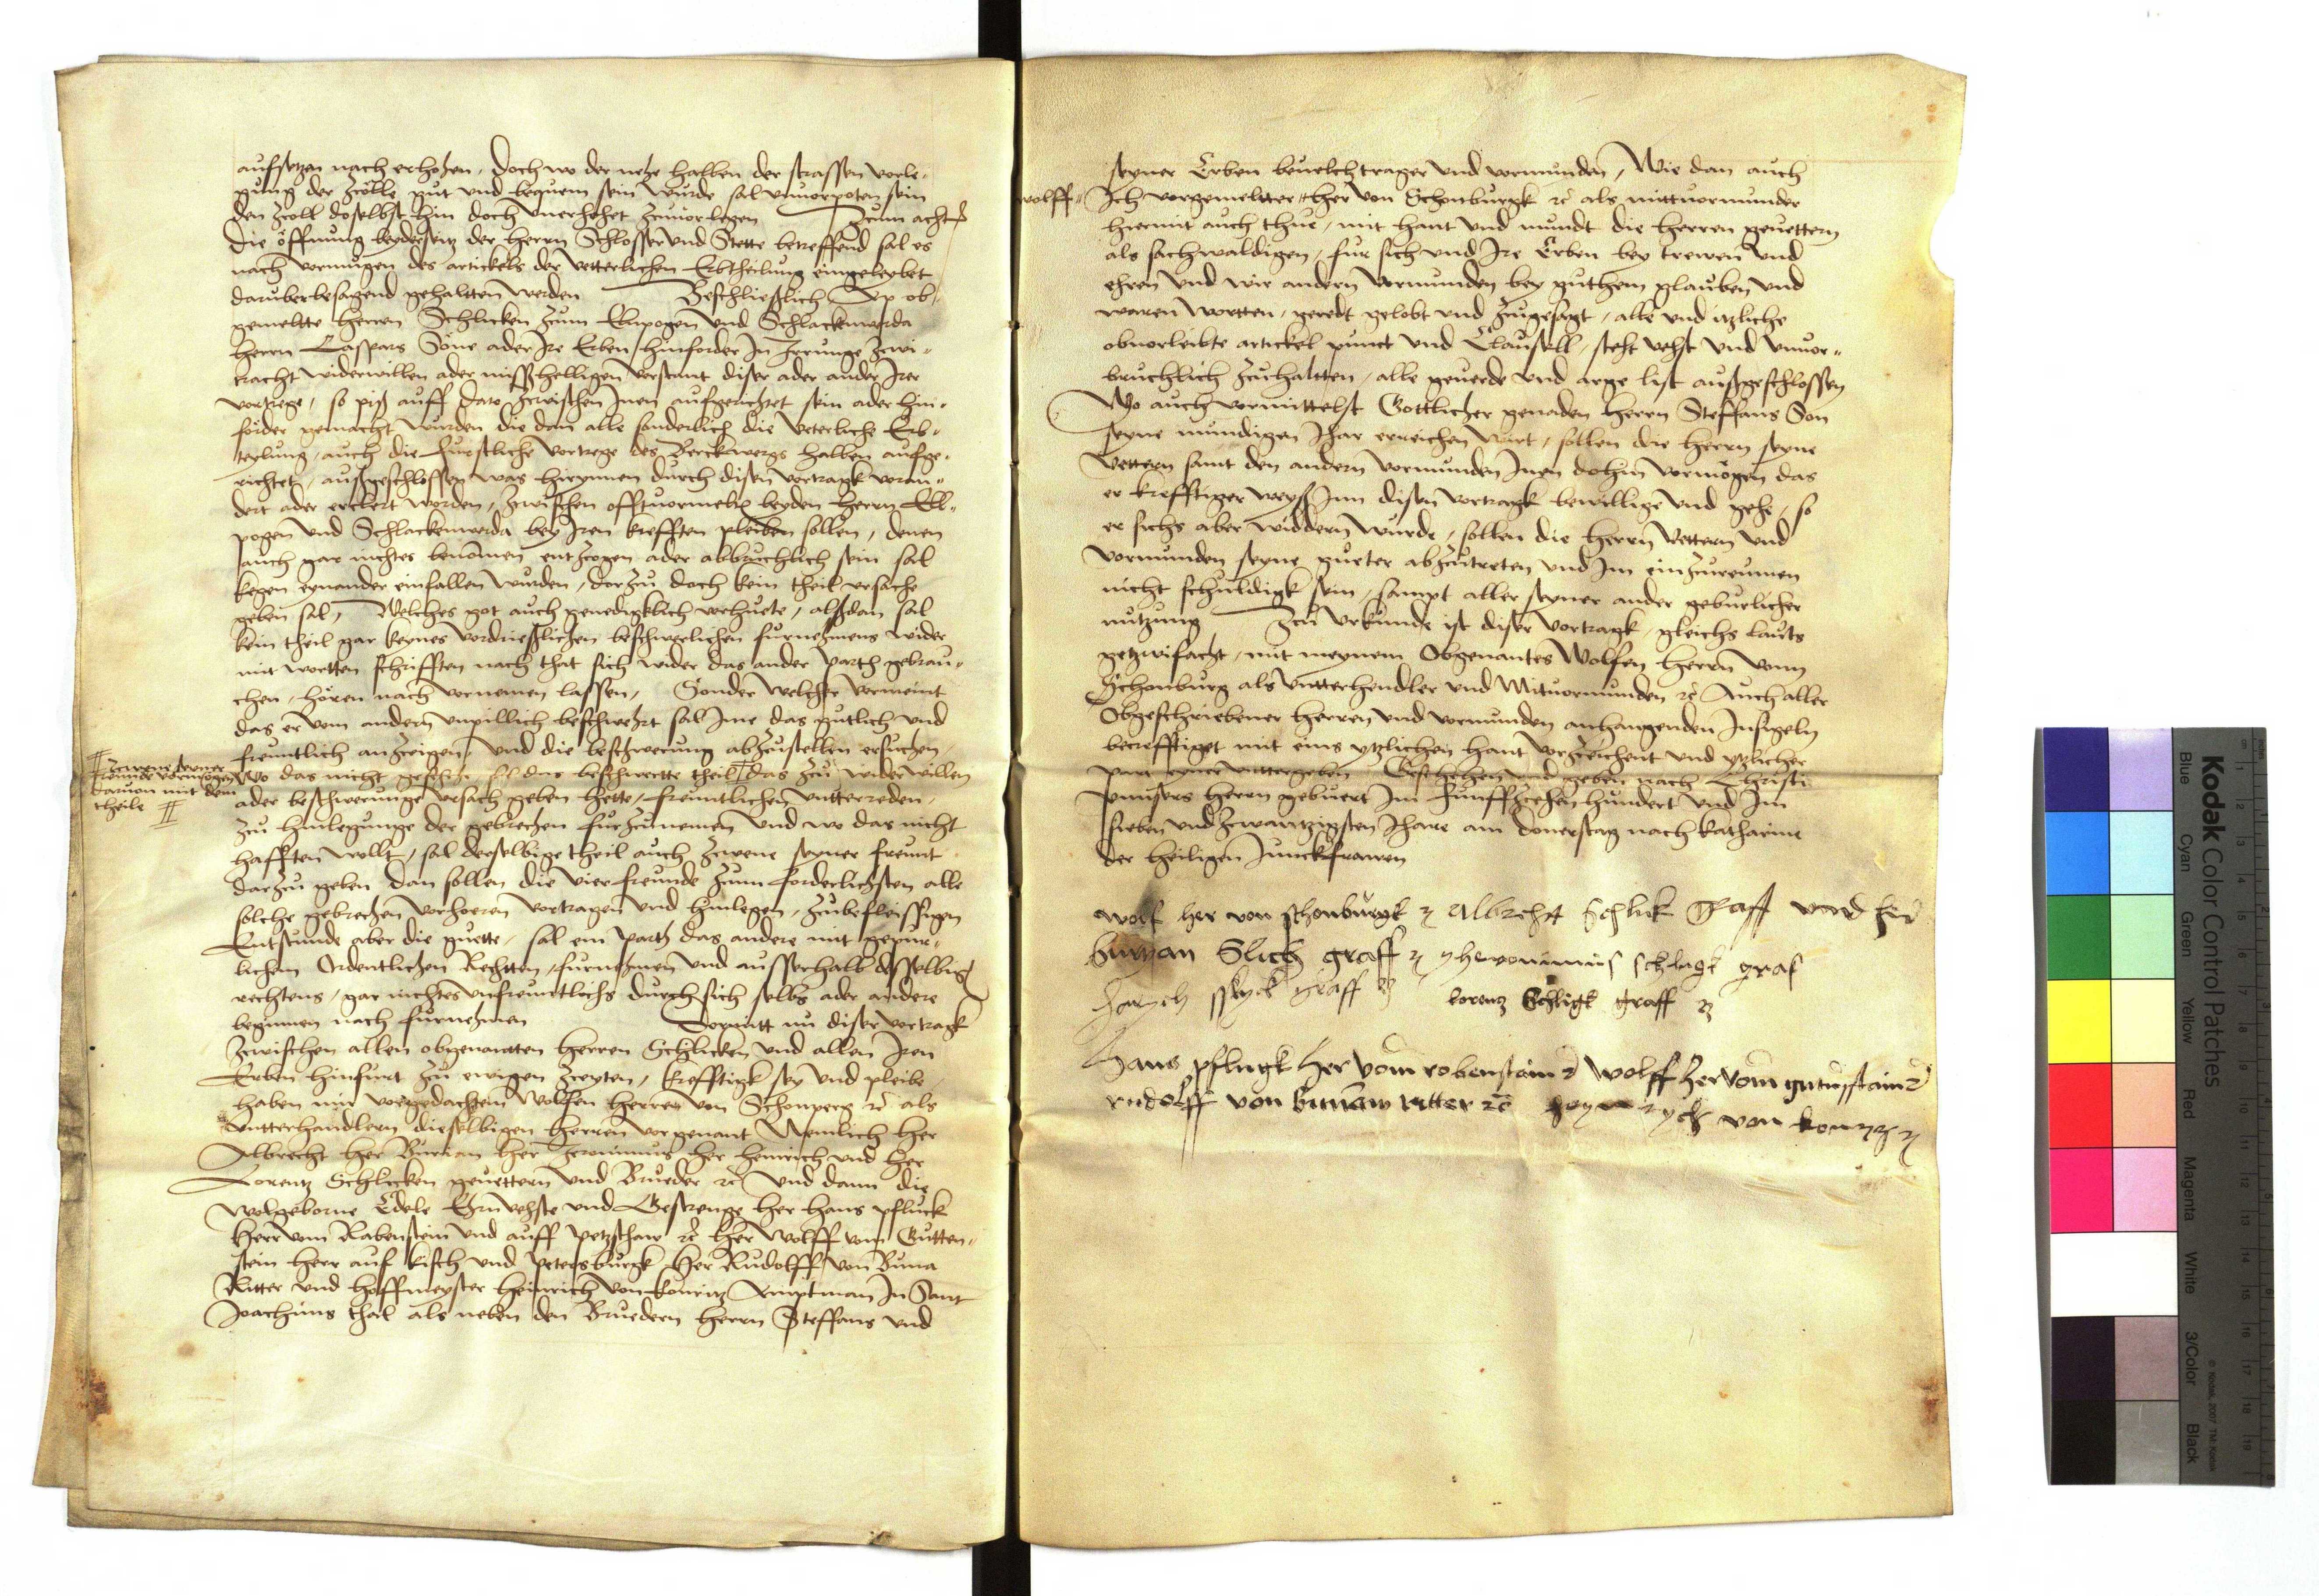 aufsetzen nach erhohen, doch wo der nehe halben der strassen vorle-
gung der Zcolle gut und bequem sein wurde sal unuorpoten sein
den Zcoll doselbst hin doch unerhohet zcuuorlegen Zcum achten
Die öffnung beyderseitz der herrn Schlosser und Stette betreffend sal es
nach vermugen des artickels der vetterlichen Erbtheilung eingeleybet
daruberbesagend gehaltten werden Beschließlich Ap ob-
gemeltte herren Schlicken zum Elnpogen und Schlackenwerda
herrn Caspars Söne ader Ire Erben hinforder In Irrunge Zcwi-
tracht widerwillen ader mißhelligen verstant diser ader ander Irer
vortrege, so piß auff dato zcwischen Inen aufgericht sein ader hin-
forder gemacht wurden die dan alle sonderlich die Veterliche Erb-
teylung, auch die furstliche vortrege des Berckwergs halben aufge-
richtet, außgeschlossen was hirynnen durch disen vortragk voran-
dert ader erclert worden, zcwischen offtuormelten beyden herrn Ell-
pogen und Schlackenwerda bey Iren krefften pleiben sollen, denen
auch gar nichtes benomen entzcogen ader abbruchlich sein sal
kegen eynander einfallen wurden, dorzu doch kein theil ursache
geben sal, Welches got auch genediglich verhuete, alßdan sal
kein theil gar keynes vordrießlichen beschwerlichen furnehmens wider
mit wortten schrifften nach that sich wider das ander Parth gebrau-
chen, hören nach vornemen lassen, Sonder welcher vermeint
das er vom andern unpillich beschwert sal Ime das gutlich und
freuntlich anzceigen, und die beschwerung abzustellen ersuchen,
Zcwene seyner
freunde vermögen
daruon mit dem
theile
Wo das nicht geschehe, sal das beschwertte theil das zu widerwillen
ader beschwerunge ursach geben hette, freuntlichen untterreden,
zu hinlegunge der gebrechen furzunemen und wo das nicht
hafften wollt, sal derselbige theil auch zcwene seyner freunt
darzu geben dan sollen die vier freunde zum forderlichsten alle
solche gebrechen verhoeren vortragen und hinlegen, zubefleissigen
Entstunde aber die guette, sal ein Parth das andere mit gepur-
lichen Ordentlichen Rechtten, furnehmen und ausserhalb desselbigen
rechtens, gar nichtes unfreuntlichs durch sich selbs ader andere
beginnen nach furnehmen Dormitt nu diser vortragk
zcwischen allen obgenantten herren Schlicken und allen Iren
Erben hinfurt zu ewigen zceyten, krefftigk sey und pleibe,
haben mir vorgedachten Wolffen herren von Schonperg etc als
untterhandlern dieselbigen herren vorgenant Nemlich her
Albrecht her Burian her Jeronimus her heinrich und her
Lorentz Schlicken geuettern und Brueder etc und dann die
Wolgeborne Edele Ernuehste und Gestrenge her hans pfluck
herr vom Rabenstein und auff petzschaw etc her Wolff vom Gutten-
stein herr auf kisch und petersburgk her Rudolff von Buna
Ritter und hoffmeyster heinrich von konritz Amptman In Sant
Joachims thal als neben den Bruedern herrn Steffans und
seyner Erben beuelchtrager und vormunden, Wie dan auch
wolff
Ich vorgemeltter her von Schonburgk etc als mittuormunder
hiermit auch thue, mit hant und mundt die herren geuettern
als sachwaldigen, fur sich und Ire Erben bey trewen und
ehren und wir andern Vormunden bey guthem glauben und
waren wortten, geredt gelobt und zugesagt, alle und itzliche
obuorleibte artickel punct und Clausell, steht vehst und unuor-
bruchlich zuhaltten, alle geuerde und arge list außgeschlossen
Wo auch vormittelst Gottlicher genaden herrn Steffans Son
seyne mundigen Jhar erreichen wirt, sollen die herrn seyne
Vettern samt den andern vormunden Inen dohin vormögen das
er krefftiger weyß Inn disen vortragk bewillige und gehe, so
er sichs aber widdern wurde, sollen die herrn Vettern und
Vormunden seyne gueter abzutreten und Im einzureumen
nicht schuldigk sein, sampt aller seyner ander geburlicher
nutzung Zcu Urkunde ist diser vortragk, gleichs lauts
gezwifacht, mit meynem Obgenantes Wolfen herrn vonn
Schonburg als untterhendler und Mituormunden etc Auch aller
Obgeschriebener herren und vormunden anhangenden Insigeln
becrefftiget mit eins ytzlichen hant vorzceichent und ytzlicher
part eyner uttergeben Geschehen und geben nach Christi
unnsers herrn gebuert Im funffzcehenhundert und Im
sieben und zcwantzigsten Jhare am donerstag nach katharine
der heiligen Junckfrawen
wolf her von schonburgk etc albrecht schlick graff und her
buryan Slick graff etc yheronimus schligk graf
lorentz Schligk graff etc
Hans pflugk her vom robenstain etc wolff her vom gutnstain etc
rudolff von bunaw ritter etc heynrych von konritz etc